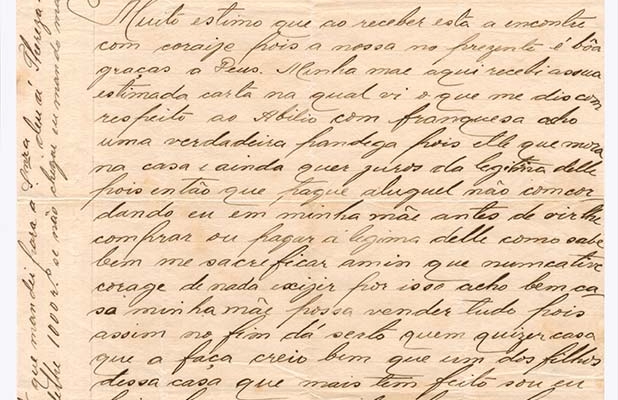 Muito estimo que ao receber esta a encontre
com coraige pois a nossa no prezente é bôa
graças a Deus. Minha mae aqui recebi a sua
estimada carta na qual vi o que me dis com
respeito ao Abilio com franquesa acho
uma verdadeira pandiga pois elle que mora
na casa e ainda quer juros da legitima delle
pois então que pague aluguel não comcor
dando eu em minha mãe antes de vir lhe
comprar ou pagar a legima delle como sabe
bem me sacreficar amin que numca tive
corage de nada exijir por isso acho bem ca
sa minha mãe possa vender tudo pois
assim no fim dá serto quem quizer casa
que a faça creio bem que um dos filhos
dessa casa que mais tem feito sou eu
que mandei para a deu a Thereza
delhe 1000 r.s se não chegou eu mando ma